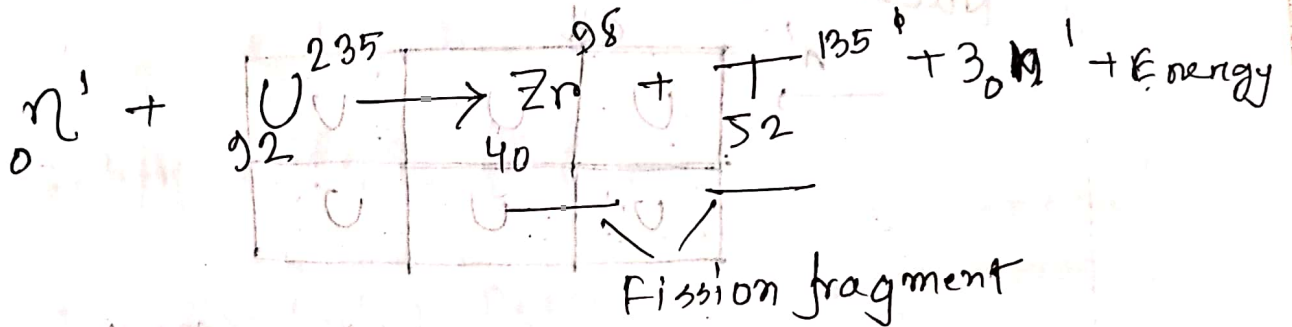 ₀n¹ + ₉₂U²³⁵ → ₄₀Zr⁹⁸ + ₅₂T¹³⁵ + 3₀n¹ + Energy
Fission fragment